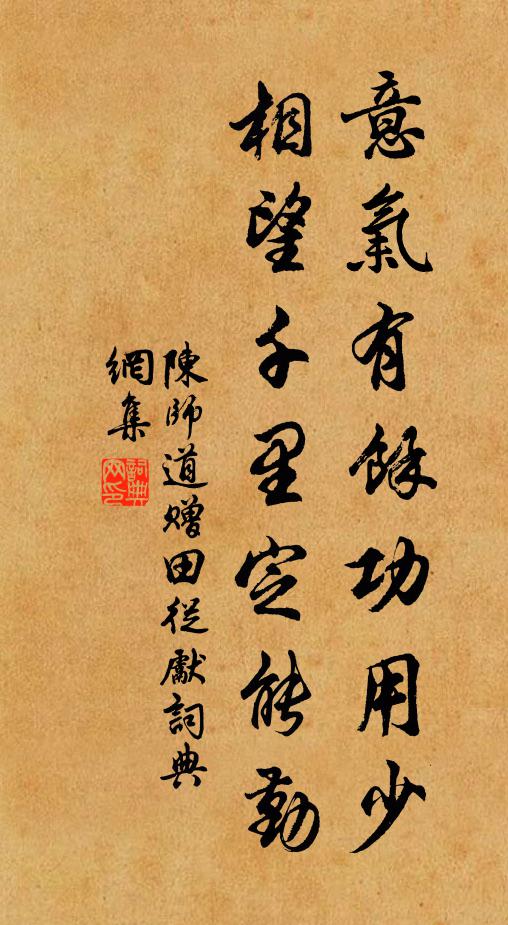 意氣有餘功用少
相望千里定能勤
陳師道贈田從獻詞典
網集
詞典網印